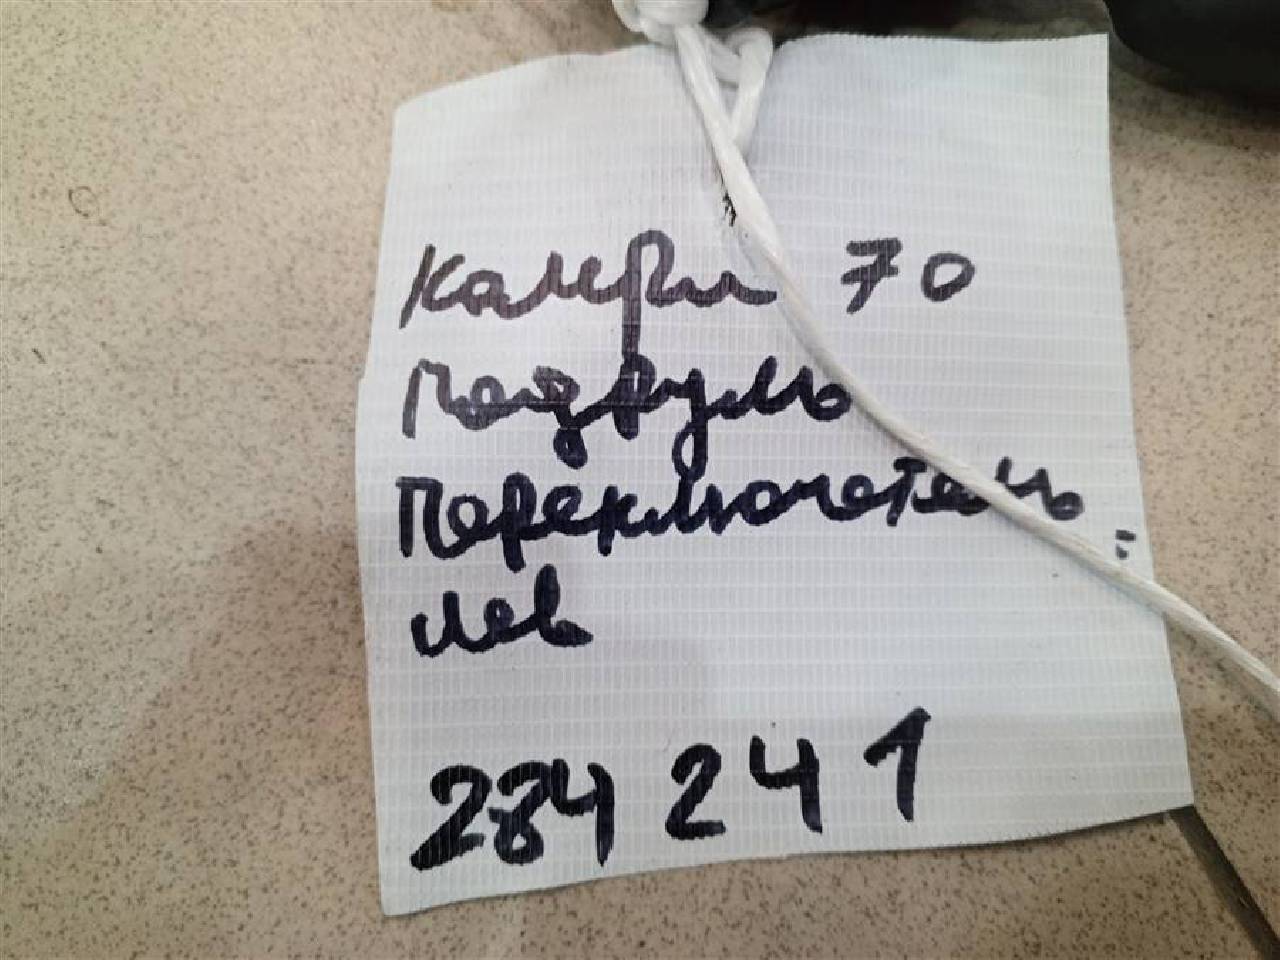 Камри 70
Подруль
Переключатель
лев
284241